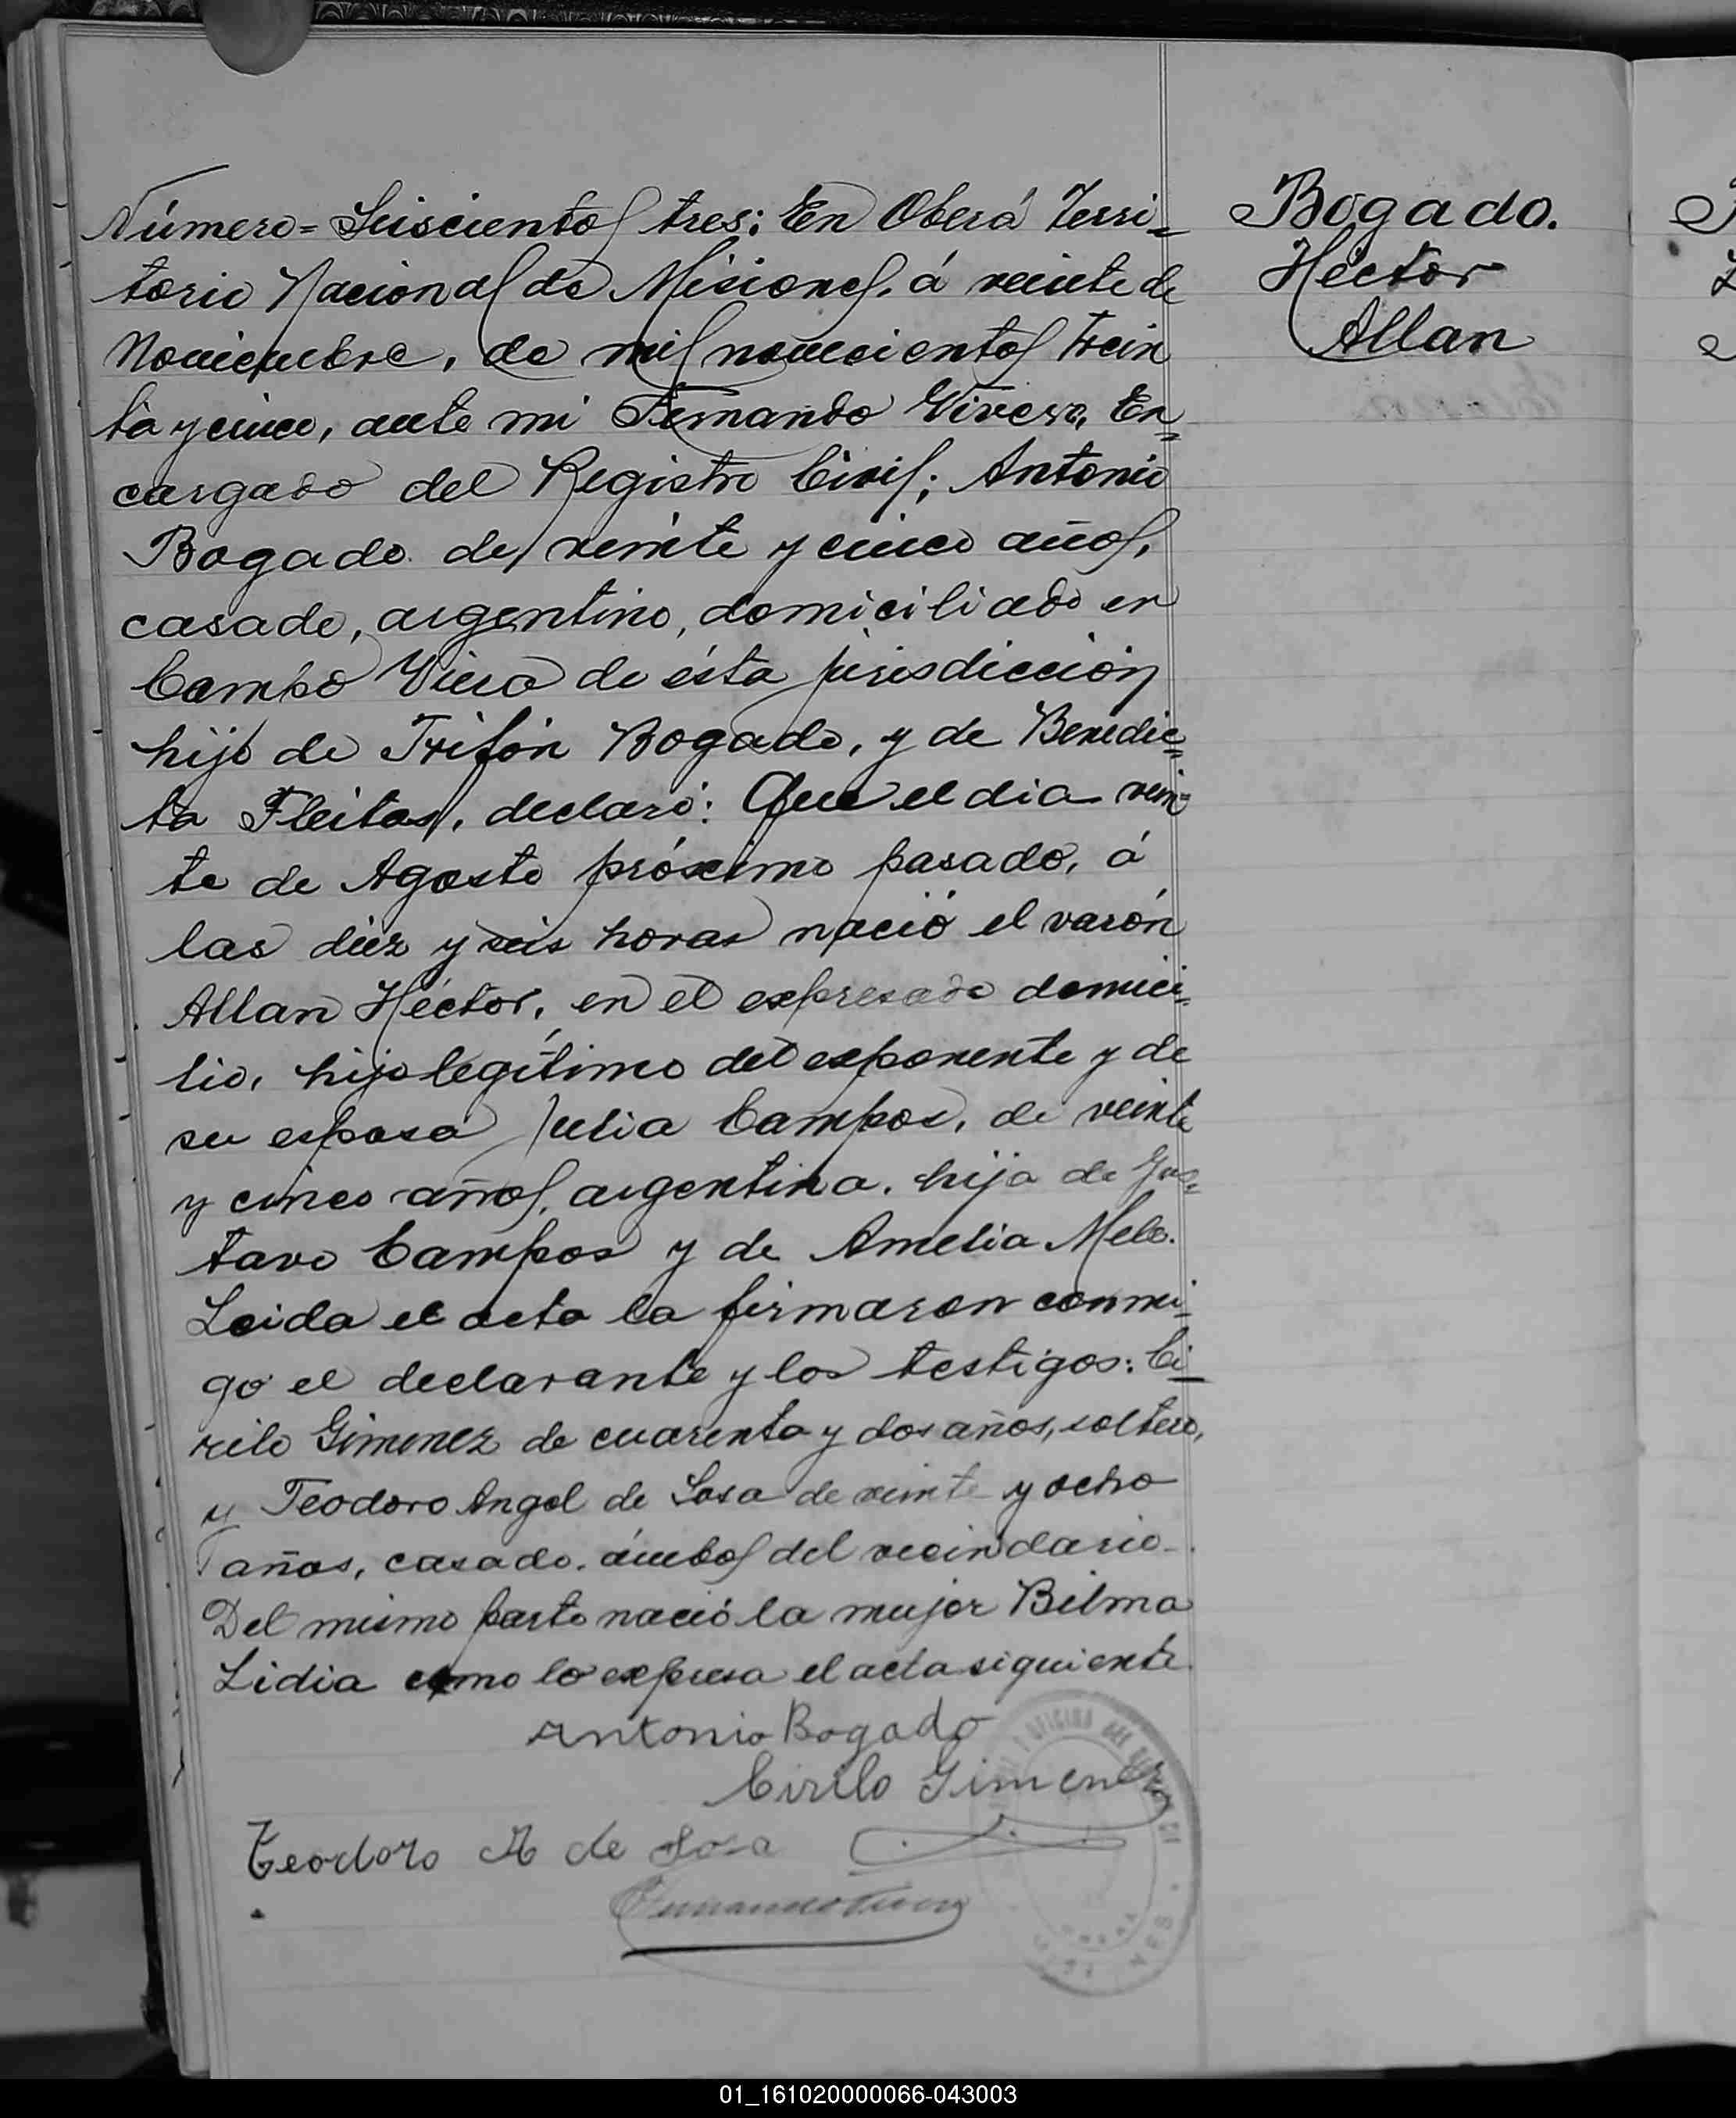 Número = Seiscientos tres: En Oberá Terri=
torio Nacional de Misiones, á veinte de
Noviembre, de mil novecientos trein
ta y cinco, ante mi Fernando Vivero, En=
cargado del Registro Civil; Antonio
Bogado de veinte y cinco años,
casado, argentino, domiciliado en
Campo Viera de ésta jurisdicción
hijo de Trifón Bogado, y de Benedic=
ta Fleitas, declaró: Que el dia vein=
te de Agosto próximo pasado, á
las diez y seis horas nació el varón
Allan Héctor, en el expresado domici=
lio, hijo legítimo del exponente y de
su esposa Julia Campos, de veinte
y cinco años, argentina, hija de Gus=
tavo Campos y de Amelia Melo.
Leida el acta la firmaron conmi=
go el declarante y los testigos: Ci
rilo Gimenez de cuarenta y dos años, soltero,
y Teodoro Angel de Sosa de veinte y ocho
años, casado, ámbos del vecindario.
Del mismo parto nació la mujer Bilma
Lidia como lo expresa el acta siguiente
Antonio Bogado
Cirilo Gimenez
Teodoro A de Sosa
Bogado.
Héctor
Allan
01_161020000066-043003